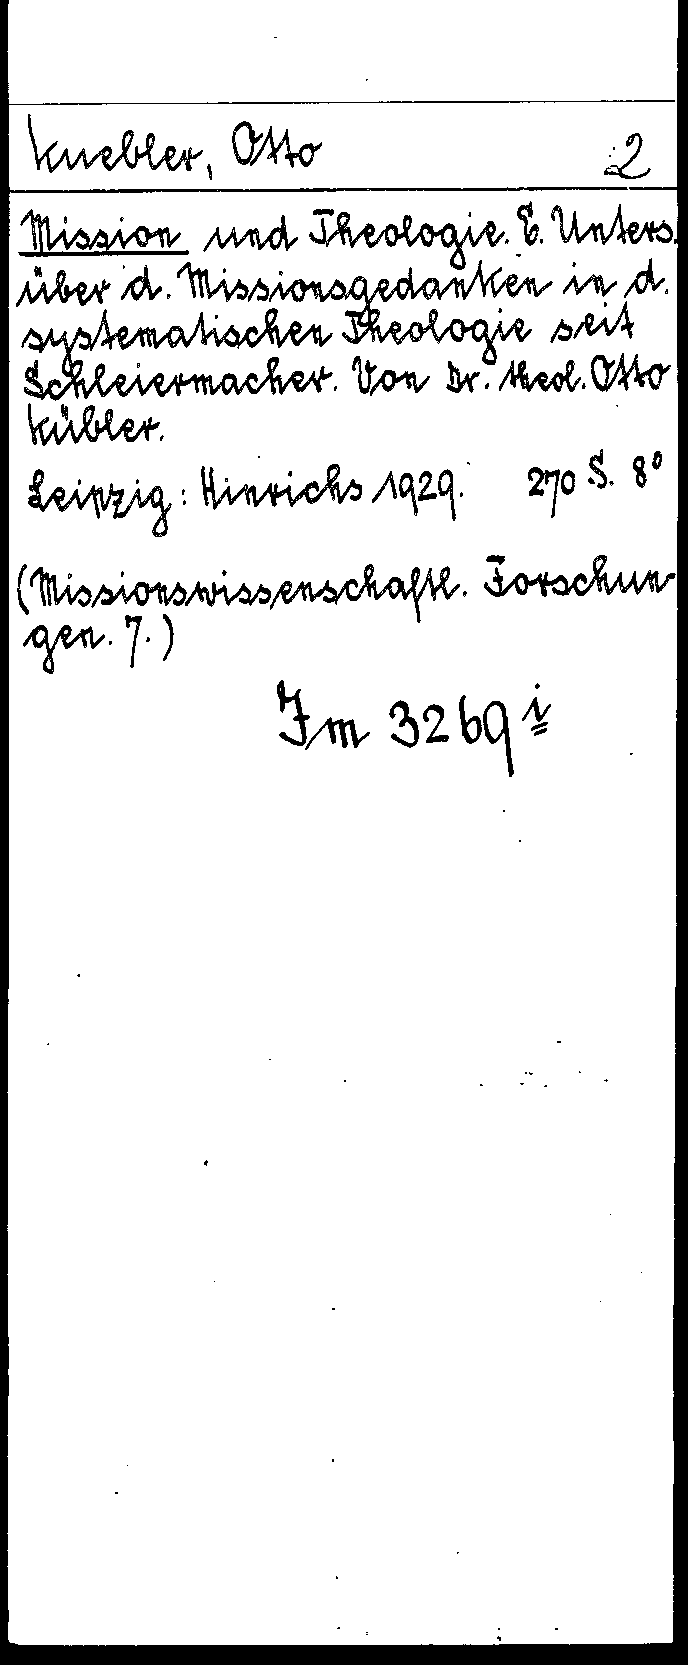 Kuebler, Otto 2
Mission und Theologie. E. Unters.
über d. Missionsgedanken in d.
systematischen Theologie seit
Schleiermacher. Von Dr. theol. Otto
Kübler.
Leipzig: Hinrichs 1929. 270 S. 8°
(Missionswissenschaftl. Forschun-
gen. 7.)
Im 3269 i